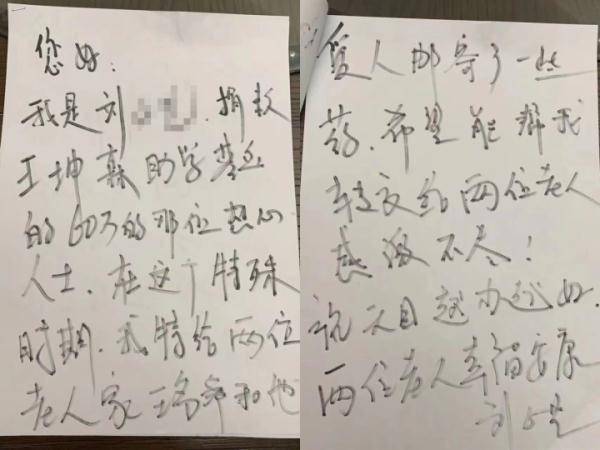 您好:
我是刘.捐款
王坤森助学基金
的60万的那位热心
人士.在这个特殊
时期.我特给两位
老人家王和他
爱人邮寄了一些
药.希望能帮我
转交给两位老人
感激不尽!
祝目越办越好.
两位老人幸福安康
刘